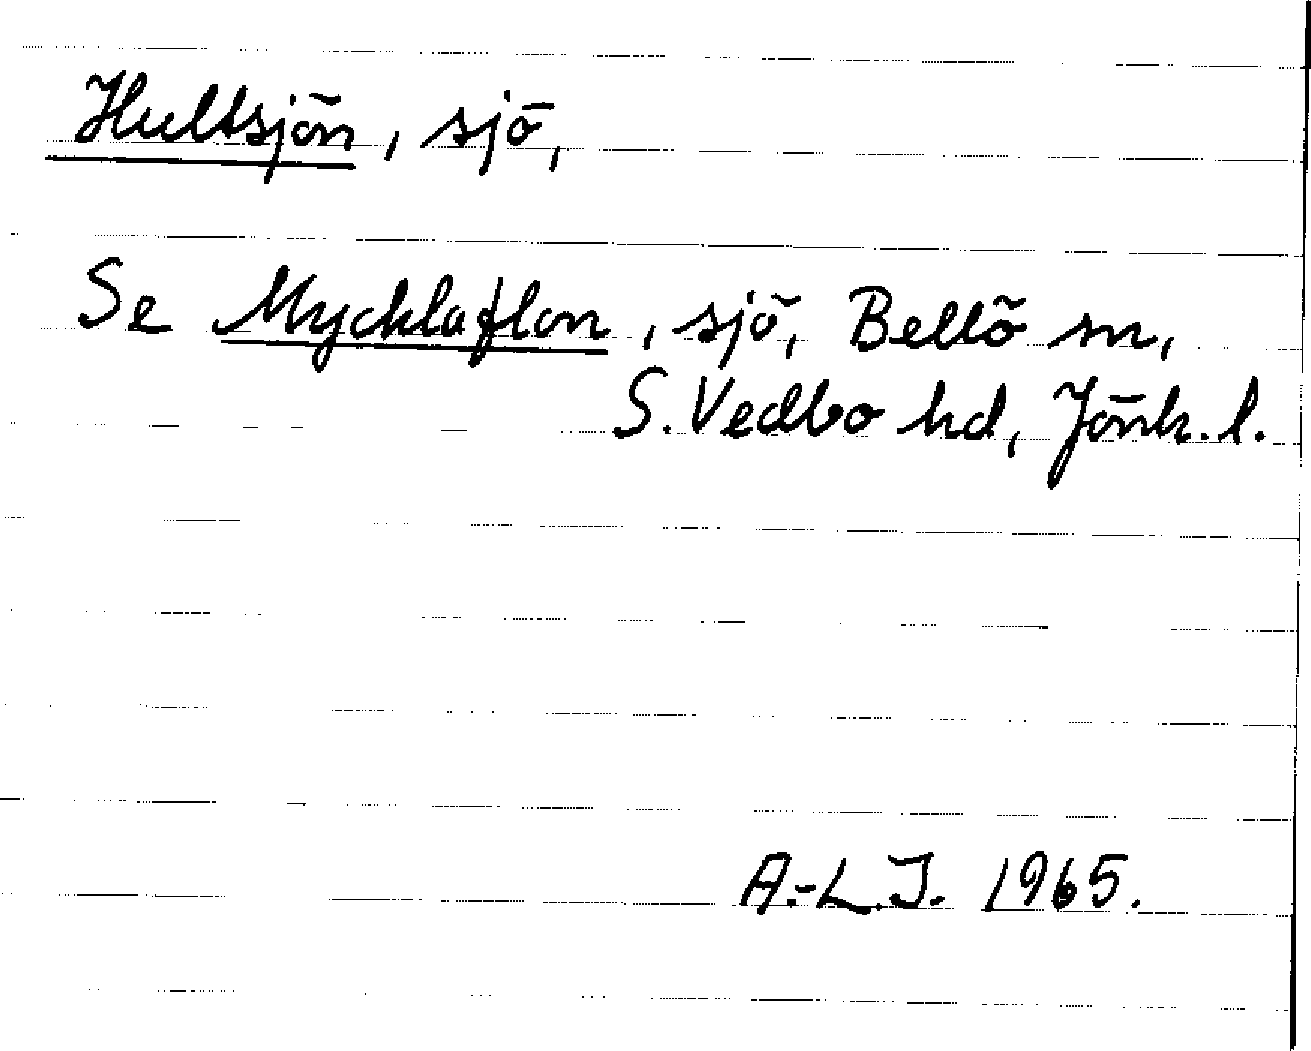 Hultsjön, sjö,
Se Mycklaflon, sjö, Bellö sn,
S. Vedbo hd, Jönk. l.
A.-L.J. 1965.